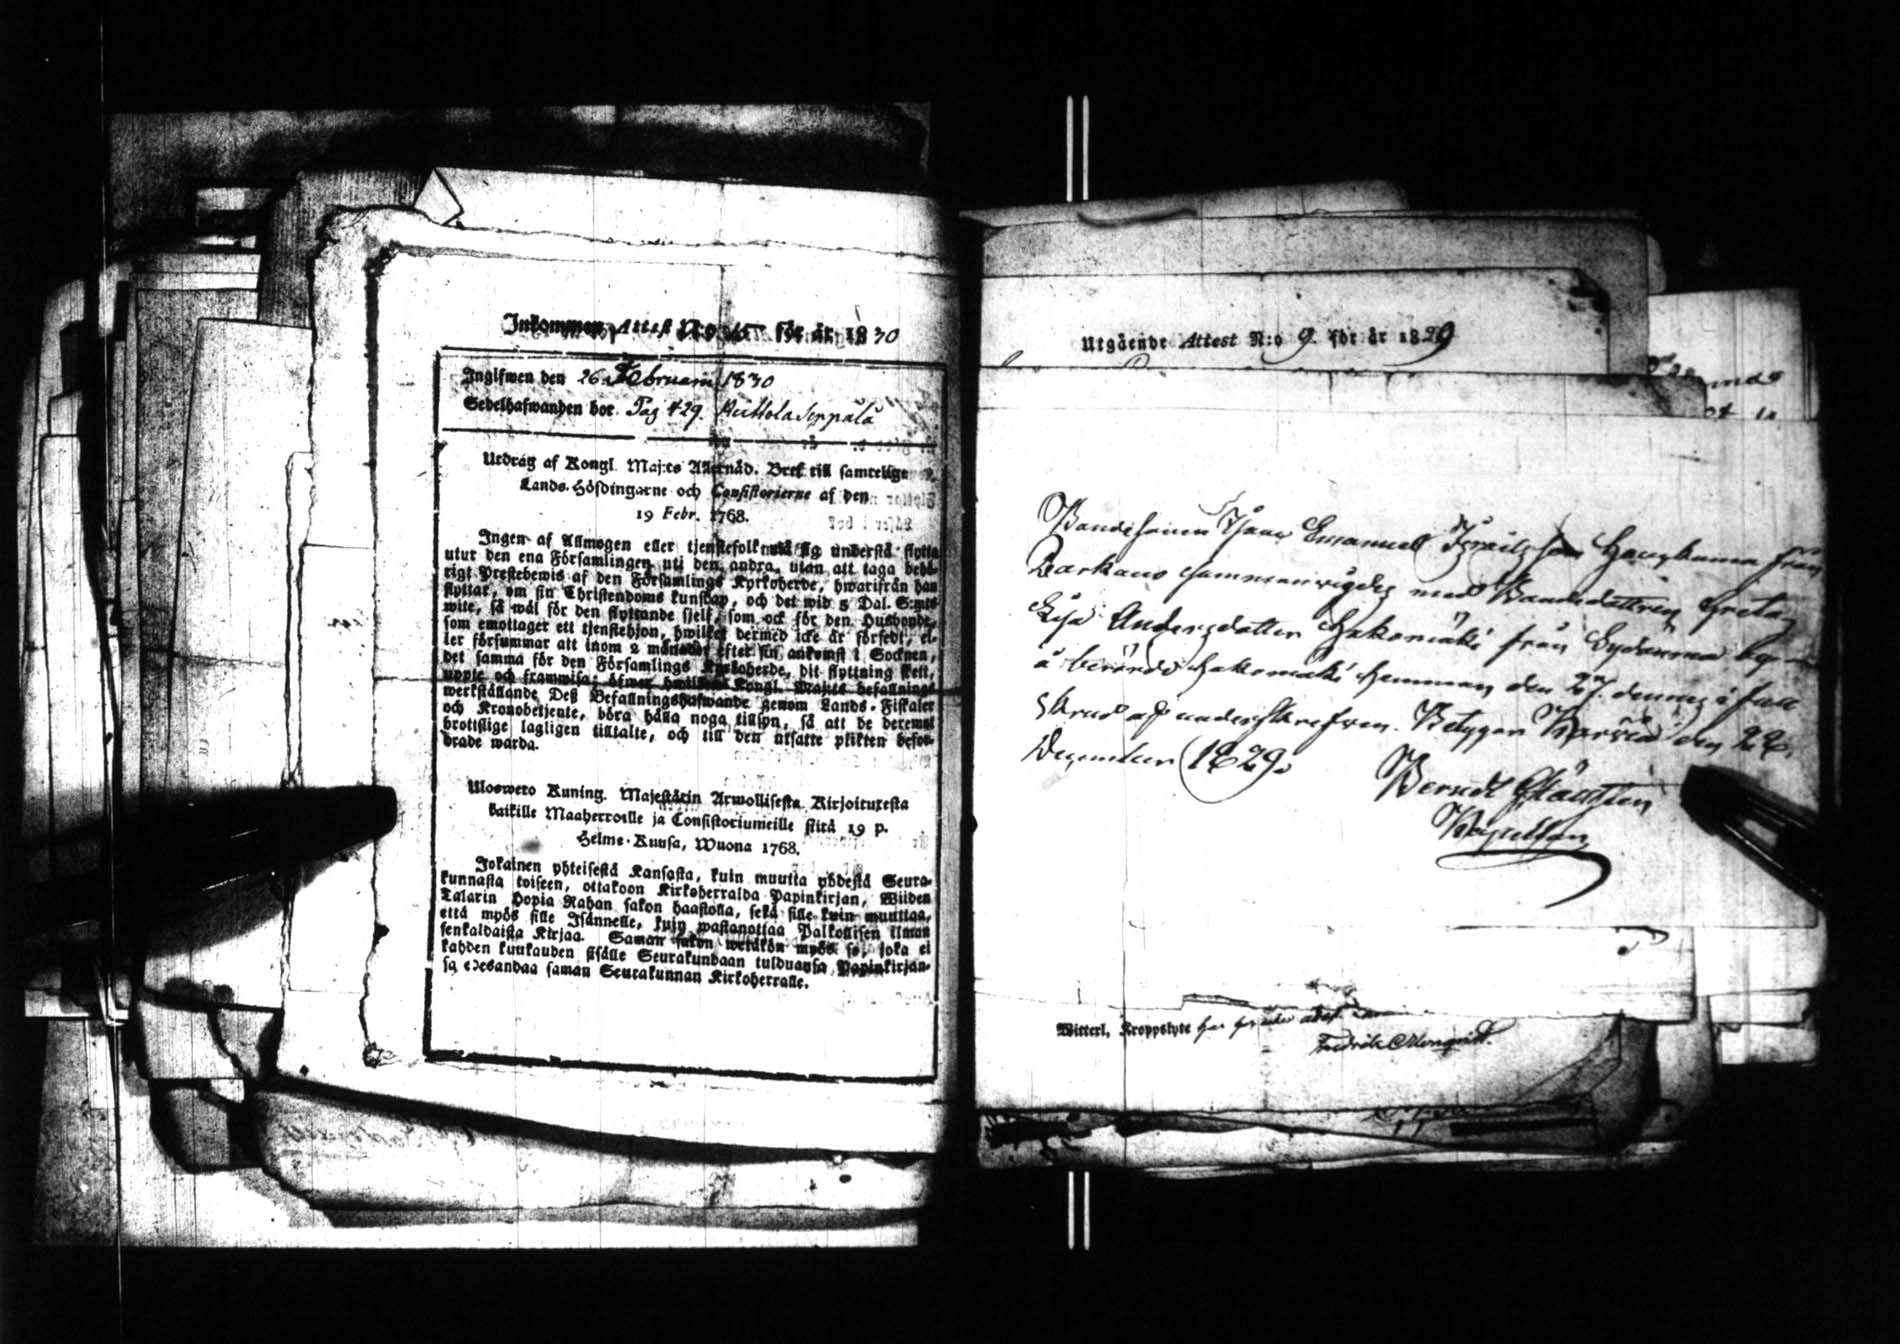 Inkommen Attest N:o för år 1830
Ingifwen den 26 Februarii 1830
Sedelhafwanden bor Pag 429.
Utdrag af Kongl. Maj:ts Allernåd. Bref till samtelige
Lands-Höfdingarne och Consistorierne af den
19 Febr. 1768.
Ingen af Allmogen eller tjenstefolk må sig understå flytta
utur den ena Församlingen uti den andra, utan att taga behö-
rigt Prestebewis af den Församlings Kyrkoherde, hwarifrån han
flyttar, om sin Christendoms kunskap, och det wid 5 Dal. S:mts
wite, så wäl för den flyttande sjelf, som ock för den Husbonde,
som emottager ett tjenstehjon, hwilket dermed icke är försedt, el-
ler försummar att inom 2 månader efter sin ankomst i Socknen,
det samma för den Församlings Kyrkoherde, dit flyttning skett,
uppte och framwisa; öfwer hwilken Kongl. Maj:ts befallnings
werkställande Deß Befallningshafwande genom Lands-Fiskaler
och Kronobetjente, böra hålla noga tillsyn, så att de deremot
brottslige lagligen tilltalte, och till den utsatte plikten befor-
drade warda.
Ulosweto Kuning. Majestätin Armollisesta Kirjoituxesta
kaikille Maaherroille ja Consistoriumeille siitä 19 p.
Helme-Kuusa, Wuona 1768.
Jokainen yhteisestä Kansasta, kuin muutta yhdestä Seura-
kunnasta toiseen, ottakoon Kirkoherralda Papinkirjan, Wiiden
Talarin Hopia Rahan sakon haastolla, sekä sille kuin muuttaa,
että myös sille Isännelle, kuin wastanottaa Palkollisen ilman
senkaldaista Kirjaa. Saman sakon wetäkön myös se, joka ei
kahden kuukauden sisälle Seurakundaan tulduansa Papinkirjan-
sa edesandaa saman Seurakunnan Kirkoherralle.
Utgående Attest N:o 9 för år 1829
Bondesonen Isaac Emanuel Israelsson Haukkama från
Barkaus sammanvigdes med Bondedottren Greta
Lisa Andersdotter Hakomäki från Sydänmaa by
å berörde Hakomäki Hemman den 27. dennes i full
skrud af underskrefwen. Betygar den
December 1829.
Berndt
Kapellan
Witterl. Kroppslyte har
Fredrik